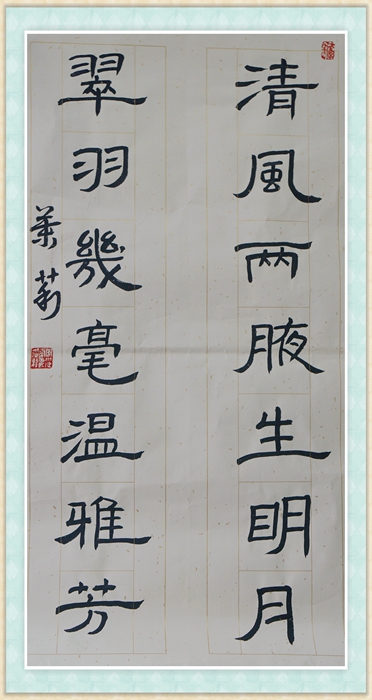 清風两腋生明月
翠羽幾毫温雅芳